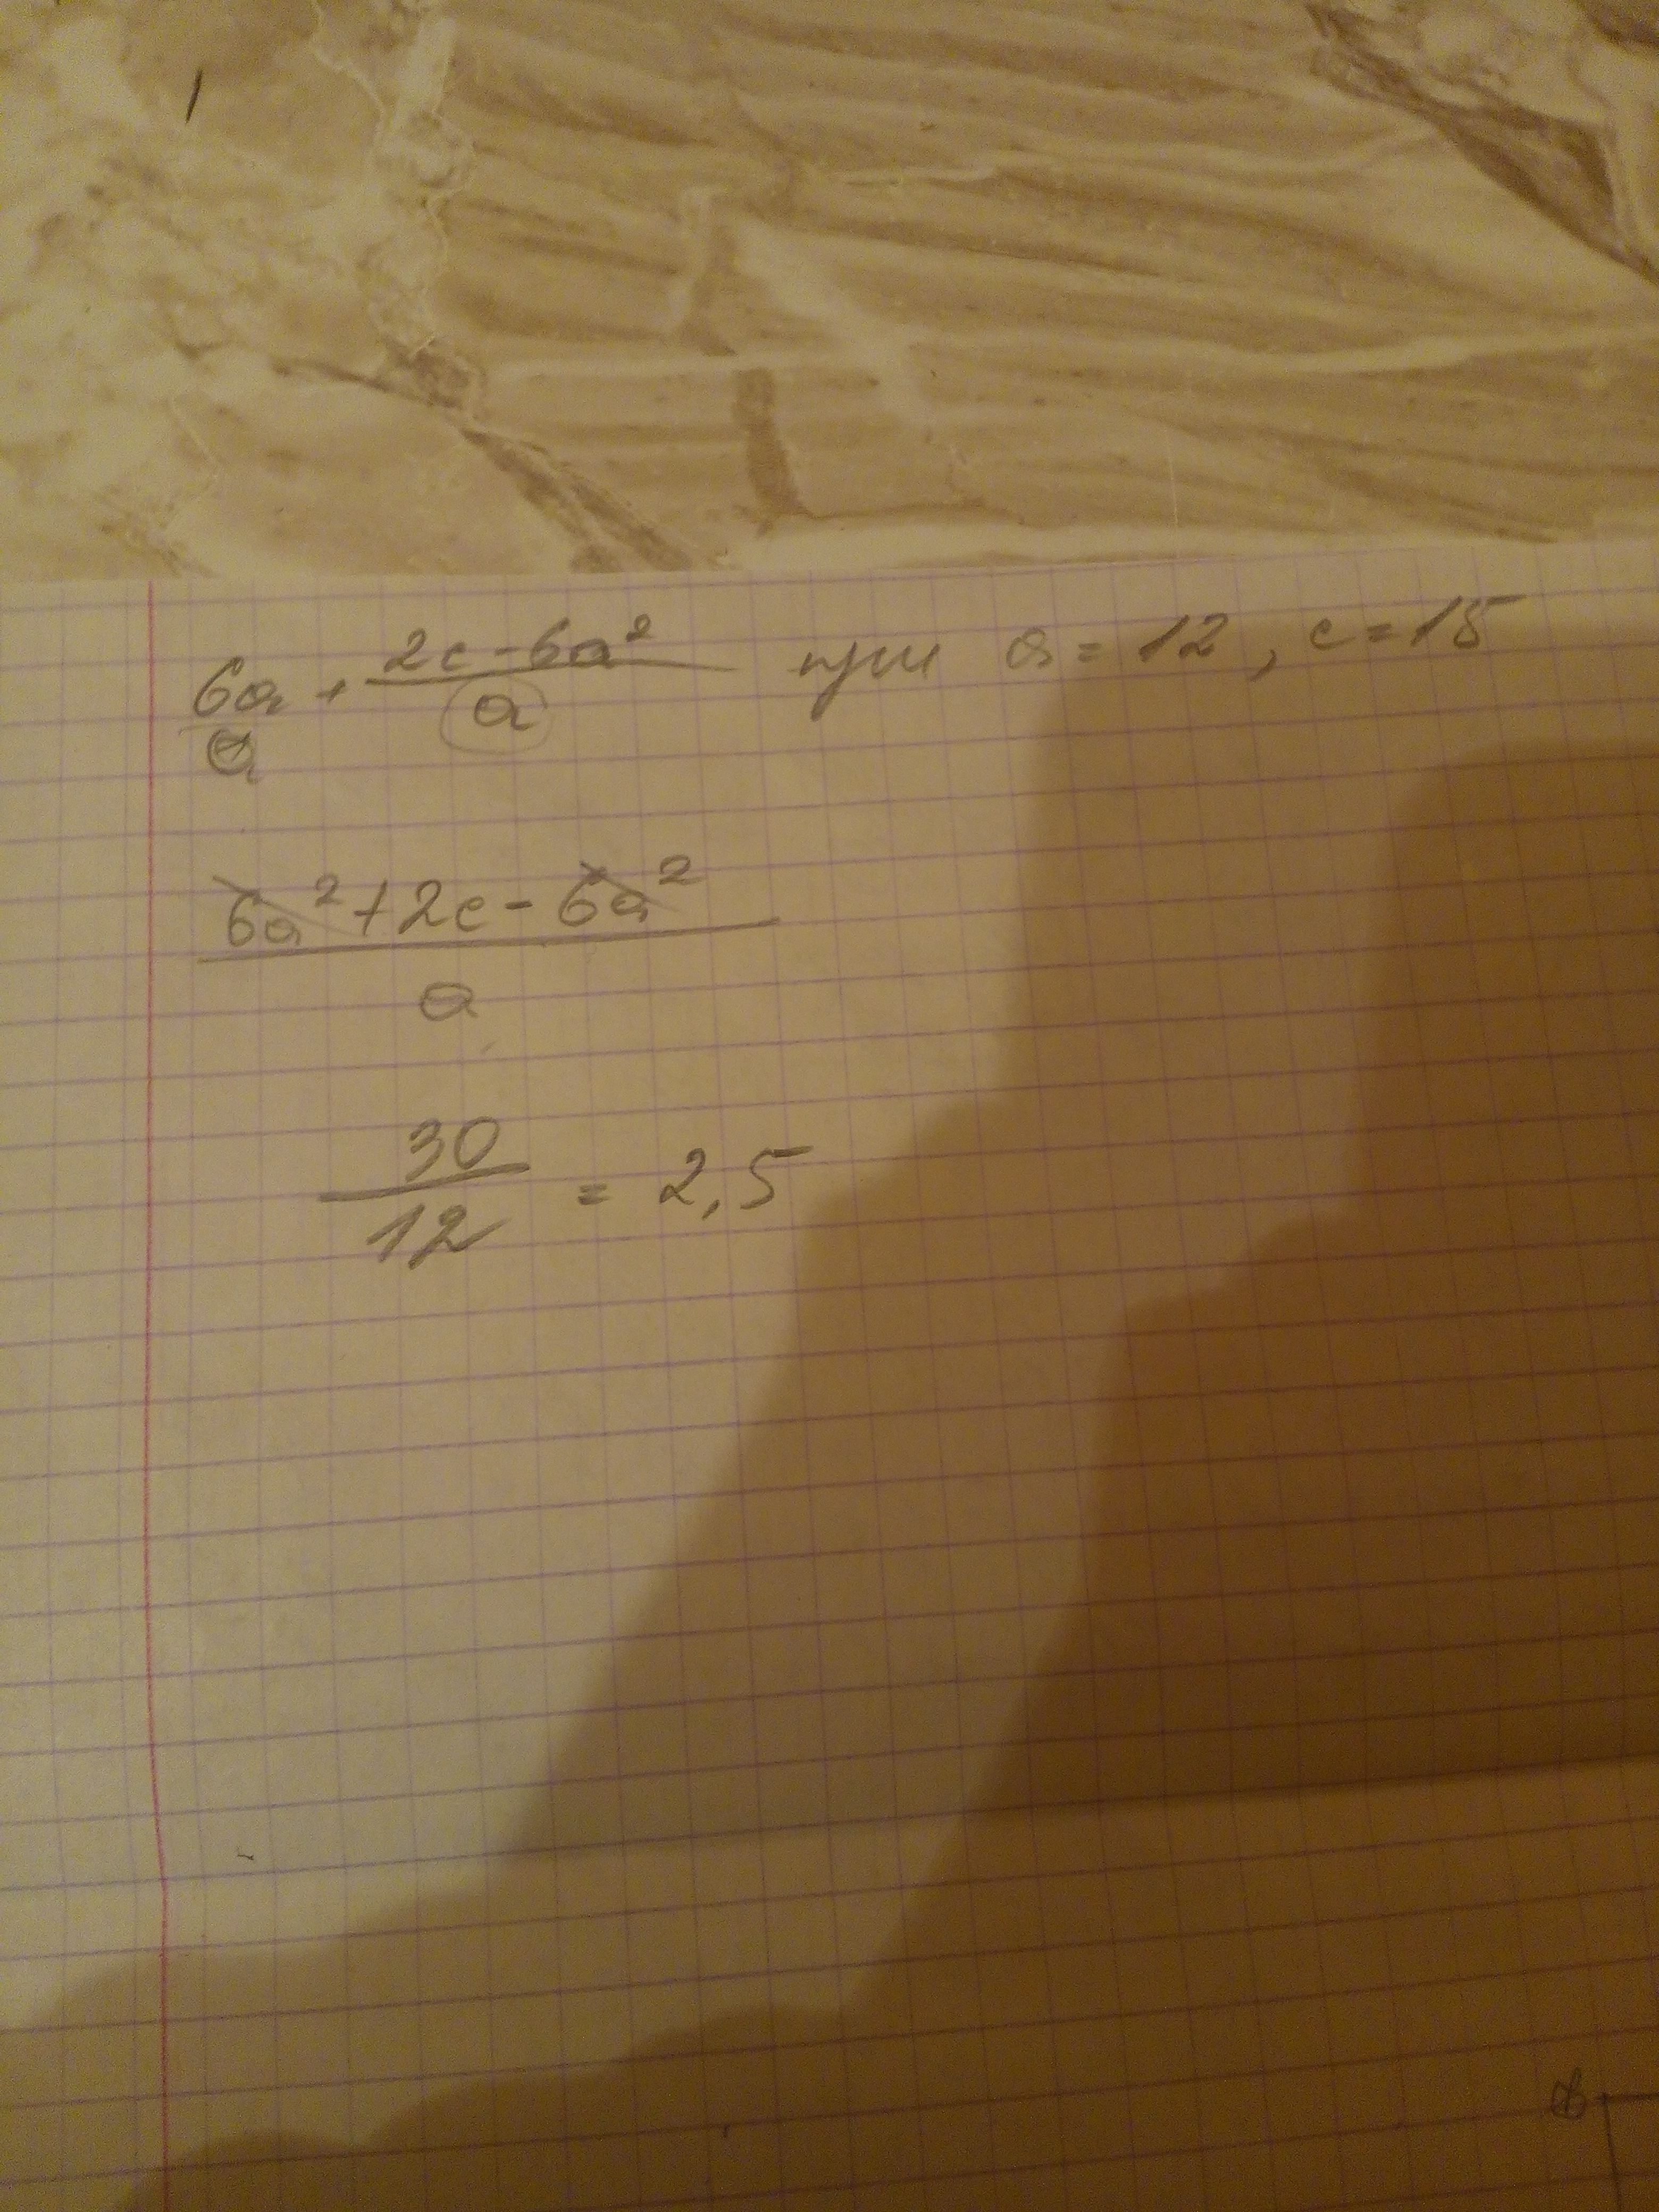 6a + (2c - 6a²)/a при a = 12, c = 15
a
(6a² + 2c - 6a²)/a
30/12 = 2,5